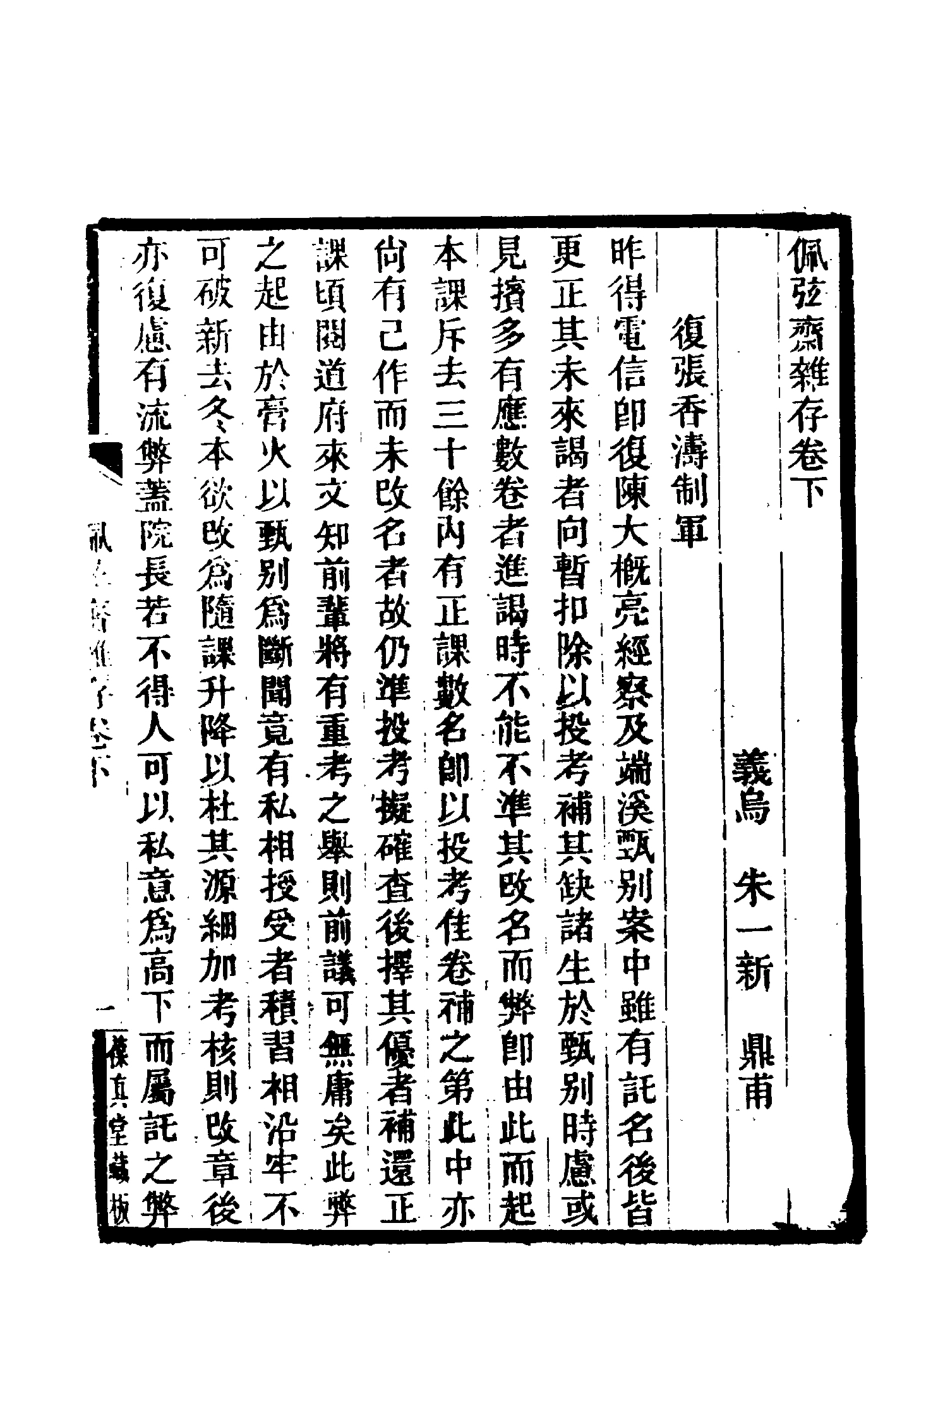 佩弦齋雜存卷下
義烏　朱一新　鼎甫
復張香濤制軍
昨得電信卽復陳大概亮經察及端溪甄別案中雖有託名後皆
更正其未來謁者向暫扣除以投考補其缺諸生於甄別時慮或
見擯多有應數卷者進謁時不能不準其改名而弊卽由此而起
本課斥去三十餘內有正課數名卽以投考佳卷補之第此中亦
尙有己作而未改名者故仍準投考擬確查後擇其優者補還正
課頃閱道府來文知前輩將有重考之舉則前議可無庸矣此弊
之起由於膏火以甄別爲斷聞竟有私相授受者積習相沿牢不
可破新去冬本欲改爲隨課升降以杜其源細加考核則改章後
亦復慮有流弊蓋院長若不得人可以私意爲高下而屬託之弊
佩弦齋雜存卷下
一
葆真堂藏板